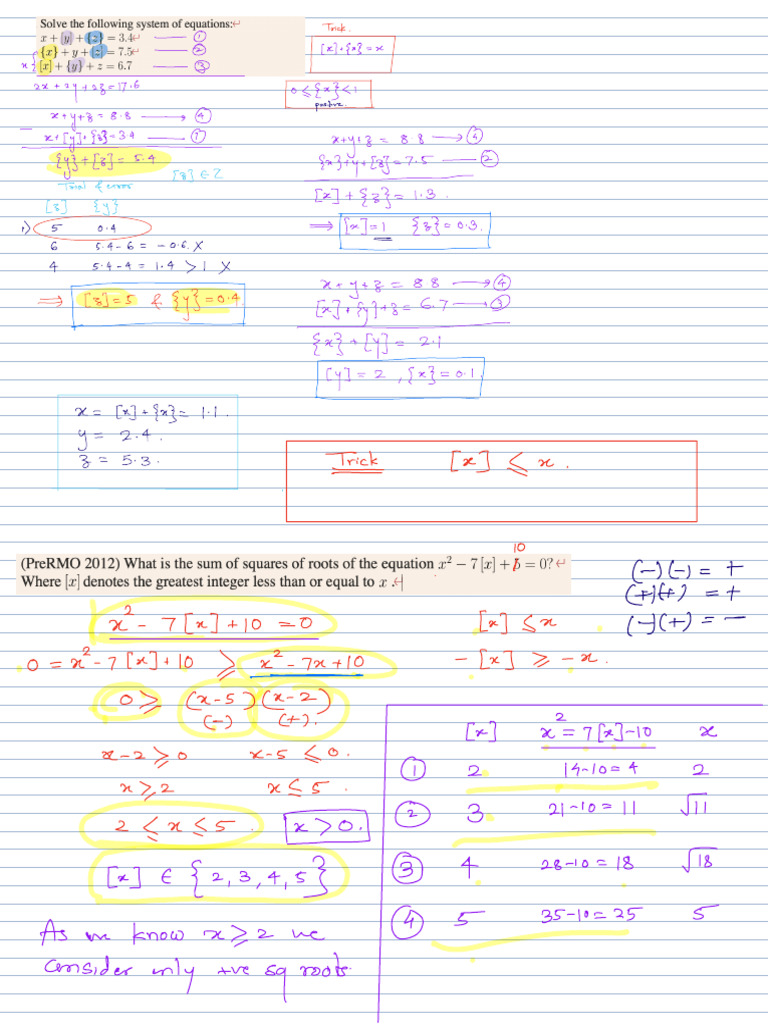 Solve the following system of equations:
x + [y] + {z} = 3.4 ——— ①
{x} + y + [z] = 7.5 ——— ②
[x] + {y} + z = 6.7 ——— ③
2x + 2y + 2z = 17.6
x+y+z = 8.8 ——→ ④
x+[y]+{z}=3.4 ——→ ①
{y}+[z] = 5.4
[z] ∈ Z
[z] {y}
1) 5 0.4
6 5.4-6 = -0.6. X
4 5.4-4 = 1.4 > 1 X
⟹ [z]=5 & {y}=0.4.
Trick.
[x]+{x} = x
0 ≤ {x} < 1
positive.
x+y+z = 8.8 ——→ ④
{x}+y+[z]=7.5 ——— ②
[x] + {z} = 1.3.
⟹ [x]=1 {z}=0.3.
x+y+z = 8.8 ——→ ④
[x]+{y}+z = 6.7 ——→ ③
{x}+[y] = 2.1
[y]=2 , {x}=0.1
x = [x]+{x} = 1.1.
y = 2.4.
z = 5.3.
Trick [x] ≤ x.
10
(PreRMO 2012) What is the sum of squares of roots of the equation x² − 7[x] + 5 = 0?
Where [x] denotes the greatest integer less than or equal to x .
(-)(-) = +
(+)(+) = +
(-)(+) = -
x² - 7[x]+10 = 0
0 = x²-7[x]+10 ≥ x²-7x+10
0 ≥ (x-5)(x-2)
(-) (+).
x-2 ≥ 0 x-5 ≤ 0.
x ≥ 2 x ≤ 5.
2 ≤ x ≤ 5. x > 0.
[x] ∈ {2, 3, 4, 5}
As we know x ≥ 2 we
consider only +ve sq roots.
[x] ≤ x
-[x] ≥ -x.
[x] x² = 7[x]-10 x
① 2 14-10 = 4 2
② 3. 21-10 = 11 √11
③ 4 28-10 = 18 √18
④ 5 35-10 = 25 5